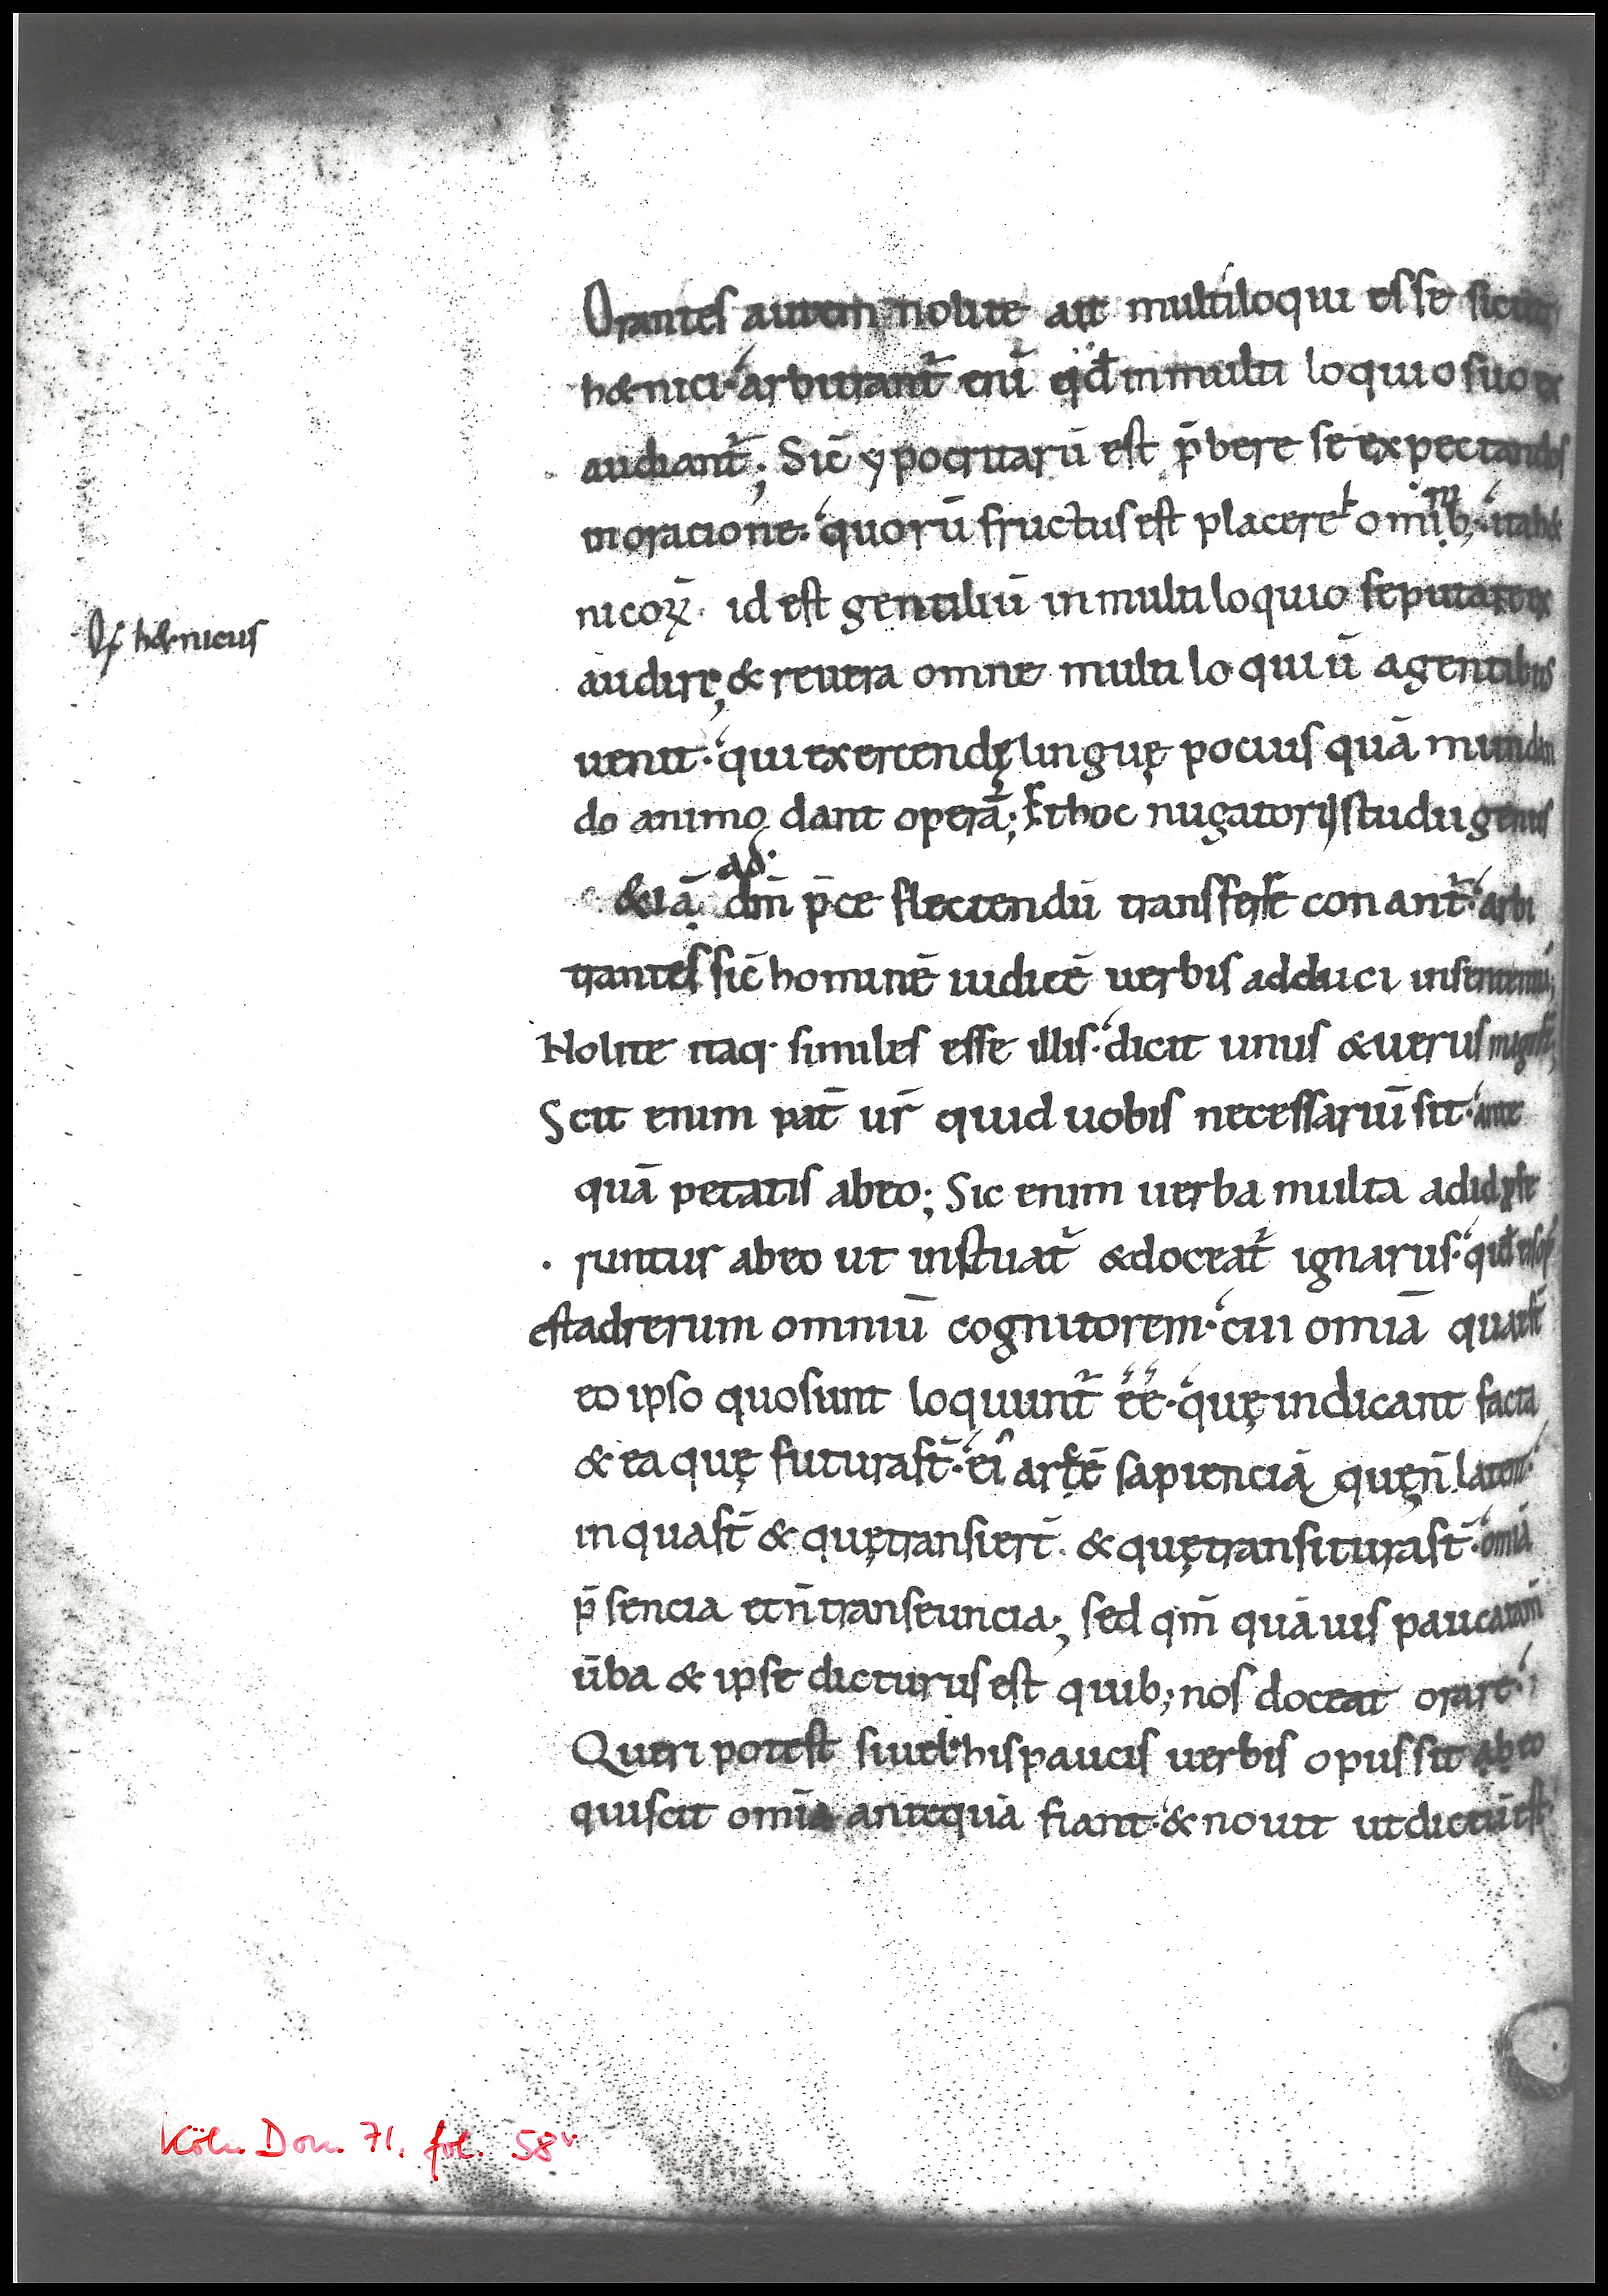 Orantes autem nolite ait multiloqui esse sicut
h&nici· arbitrant̄ eni̅ qd̄ in multi loquio suo ex
audiant̄; Sic̄ ypocritarū est p̄bere se expectandos
in oracione· quorū fructus est placere omib; ita h&
nicoꝝ· id est gentiliū in multiloquio se putare ex
Qſ h&nicus
audire; & reuera omne multiloquiū a gentilibus
uenit· qui exercendę linguę pocius quā mundan
do animo dant operā; Et hoc nugatorij studii genus
&iā ad dm̄ p̄ce flectendū transferre conant̄· arbi
trantes sic̄ hominē iudicē uerbis adduci in sententiā;
Nolite itaq· similes esse illis· dicit unus & uerus magist̄;
Scit enim pat̄ ur̄ quid uobis necessariū sit· ante
quā petatis ab eo; Sic enim uerba multa ad id
runtur ab eo ut instruat̄ & doceat̄ ignarus· quid
est ad rerum omniū cognitorem· cui omīa quae st̄
eo ipso quo sunt loquunt̄ ee· quę indicant facta
& ea quę futura st̄· sapienciā quę n̄ latent·
in qua st̄ & quę transiert̄· & quę transitura st̄· omīa
p̄sencia et n̄ transeuncia; sed qm̄ quāuis pauca tam̄
ūba & ipse dicturus est quib; nos doceat orare;
Queri potest si uel his paucis uerbis opus sit ab eo
qui scit omīa antequā fiant· & nouit ut dictū est
Köln Dom. 71. fol. 58v